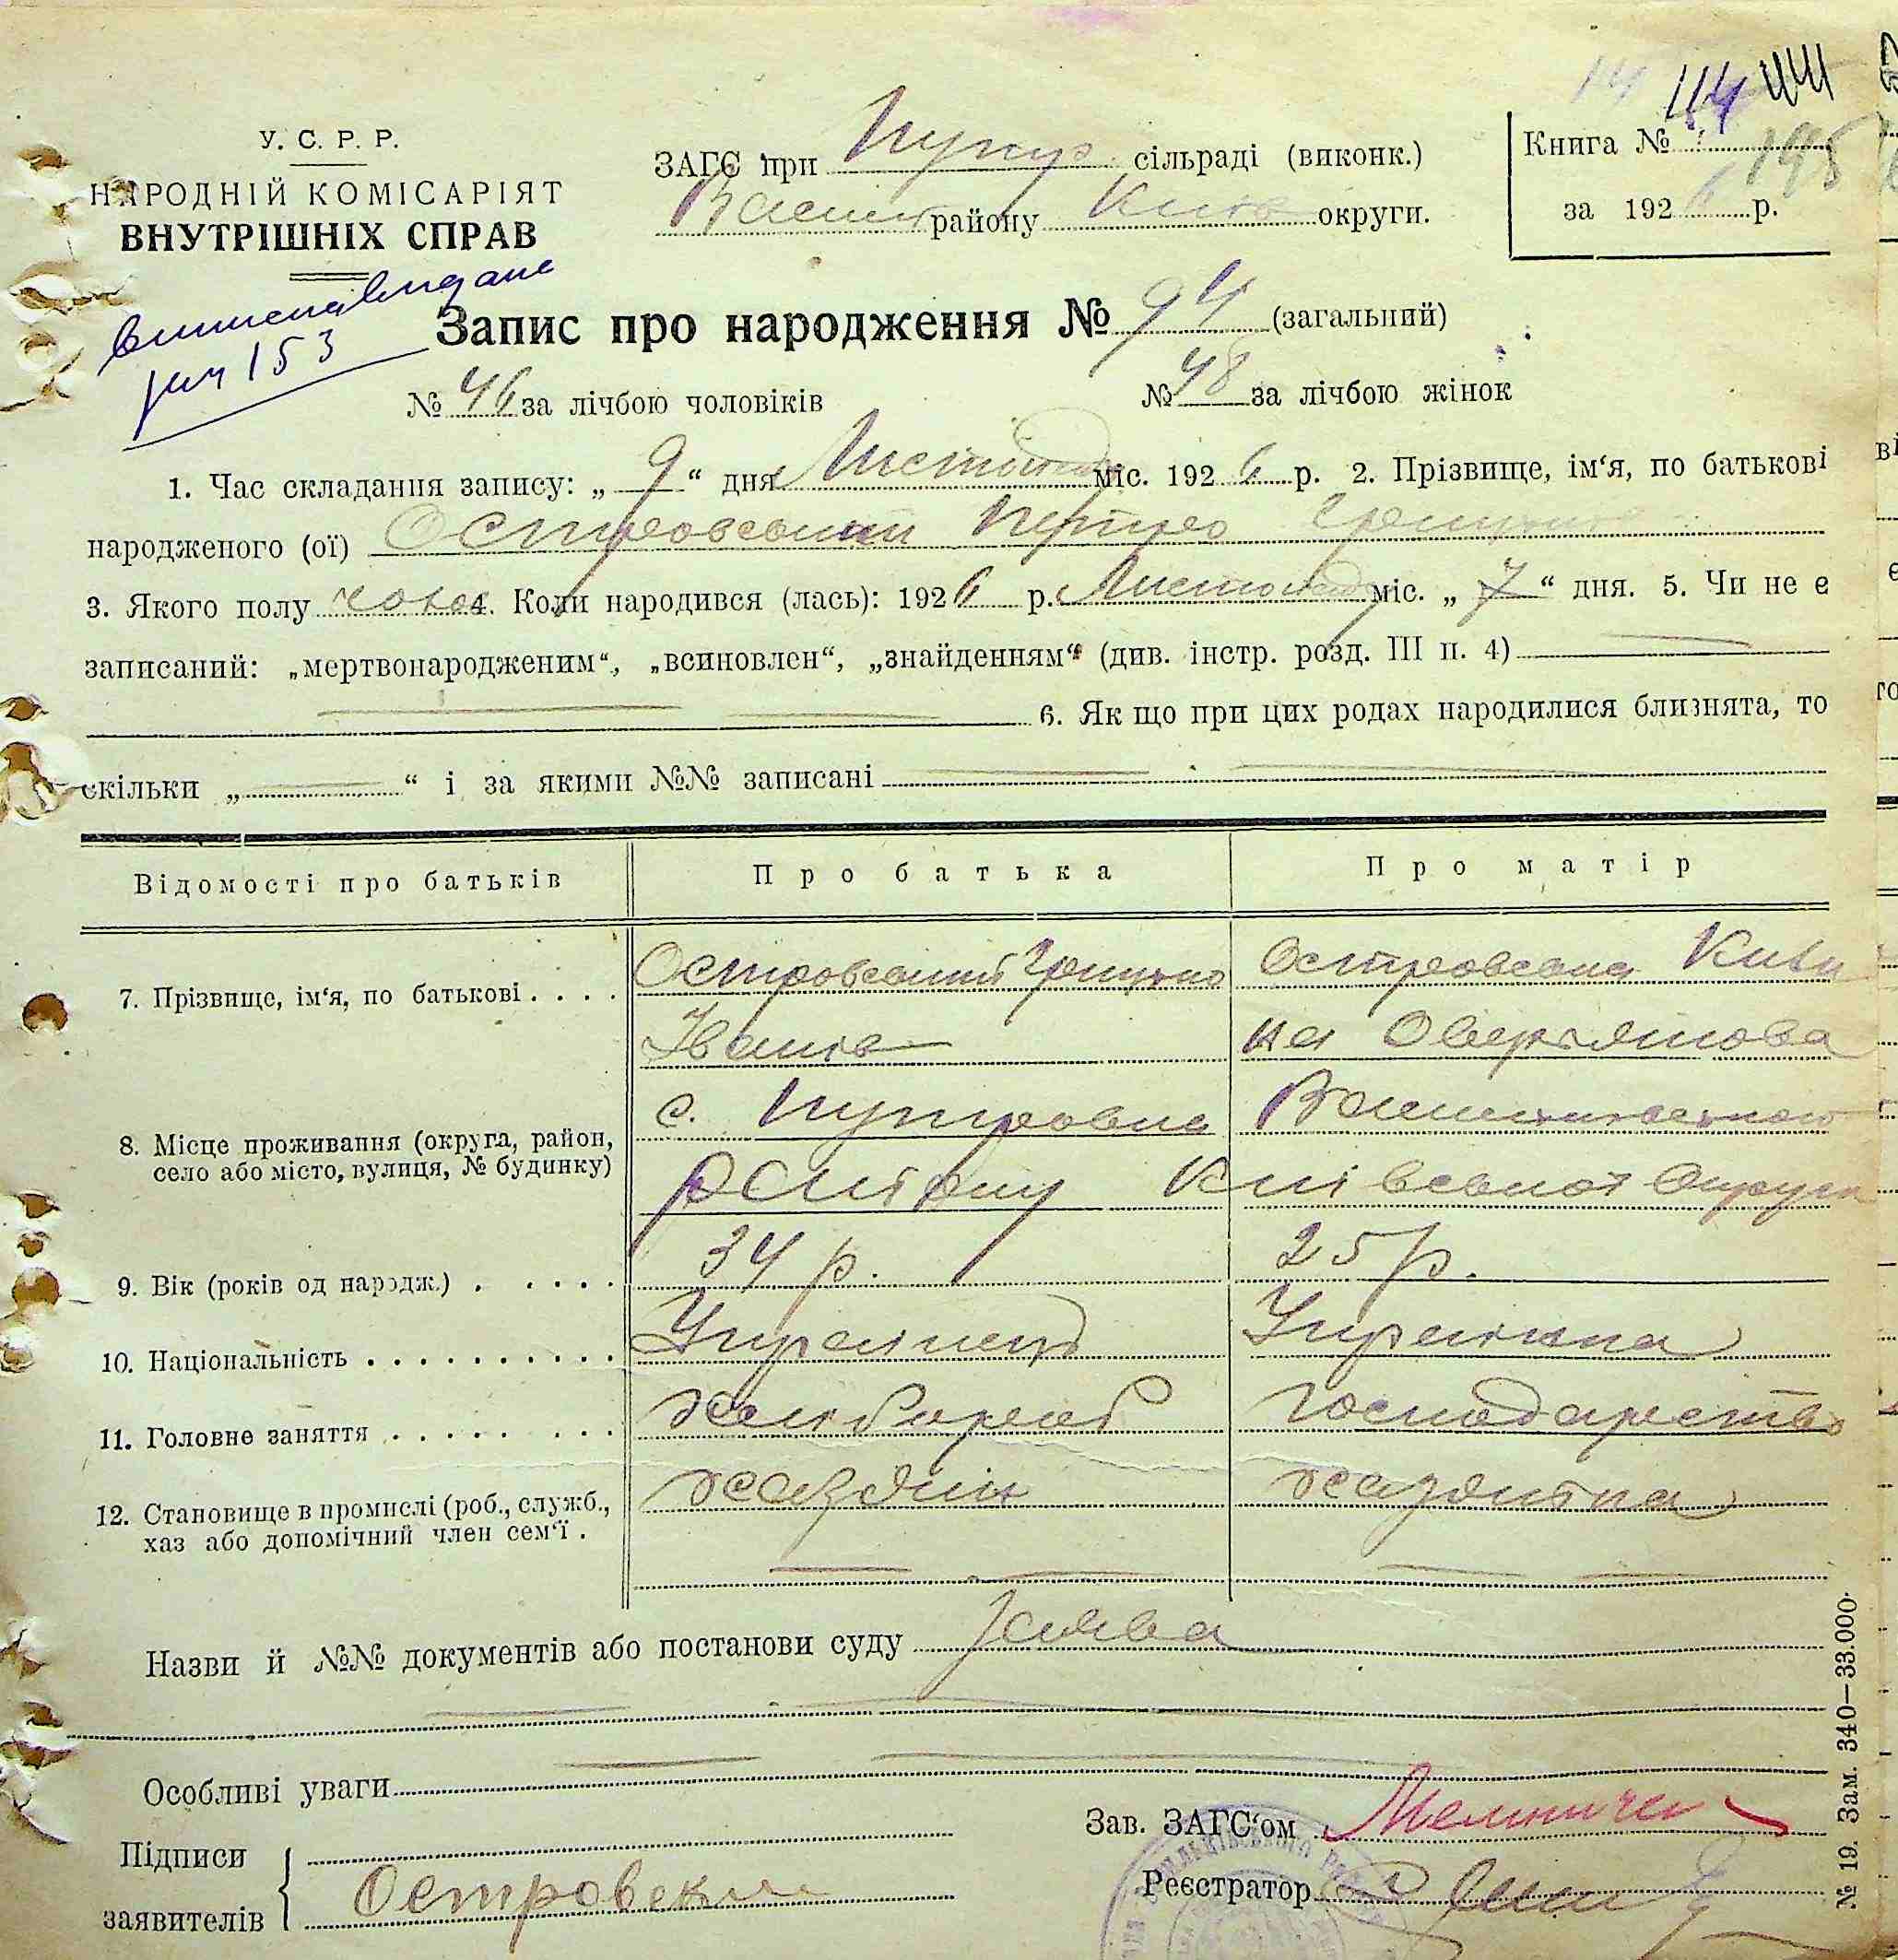 У. С. Р. Р.
НАРОДНІЙ КОМІСАРІЯТ
ВНУТРІШНІХ СПРАВ
ЗАГС при сільраді (виконк.)
району Київ округи.
144 44
Книга № 195
за 1926 р.
153
Запис про народження № 94 (загальний)
№ 46 за лічбою чоловіків № 48 за лічбою жінок
1. Час складання запису: „ 9 “ дня Листопада міс. 1926 р. 2. Прізвище, ім‘я, по батькові
народженого (ої) Островський Петро
3. Якого полу чолов 4. Коли народився (лась): 1926 р. Листопада міс. „ 7 “ дня. 5. Чи не є
записаний: „мертвонародженим“, „всиновлен“, „знайденням“ (див. інстр. розд. III п. 4)
6. Як що при цих родах народилися близнята, то
скільки „ “ і за якими №№ записані
Відомості про батьків Про батька Про матір
7. Прізвище, ім‘я, по батькові . . . . Островський Грицько Островська Кили
Іванів на Овер‘янова
8. Місце проживання (округа, район, село або місто, вулиця, № будинку) с. Путровка
району Київської округи
9. Вік (років од народж.) . . . . . 34 р. 25 р.
10. Національність . . . . . . . . . . Українець Українка
11. Головне заняття . . . . . . . . . хлібороб господарство
12. Становище в промислі (роб., служб., хаз або допомічний член сем‘ї . хазяїн хазяйка
Назви й №№ документів або постанови суду Заява
Особливі уваги
Підписи заявителів Островський
Зав. ЗАГС‘ом
Реєстратор
№ 19. Зам. 340—33.000.